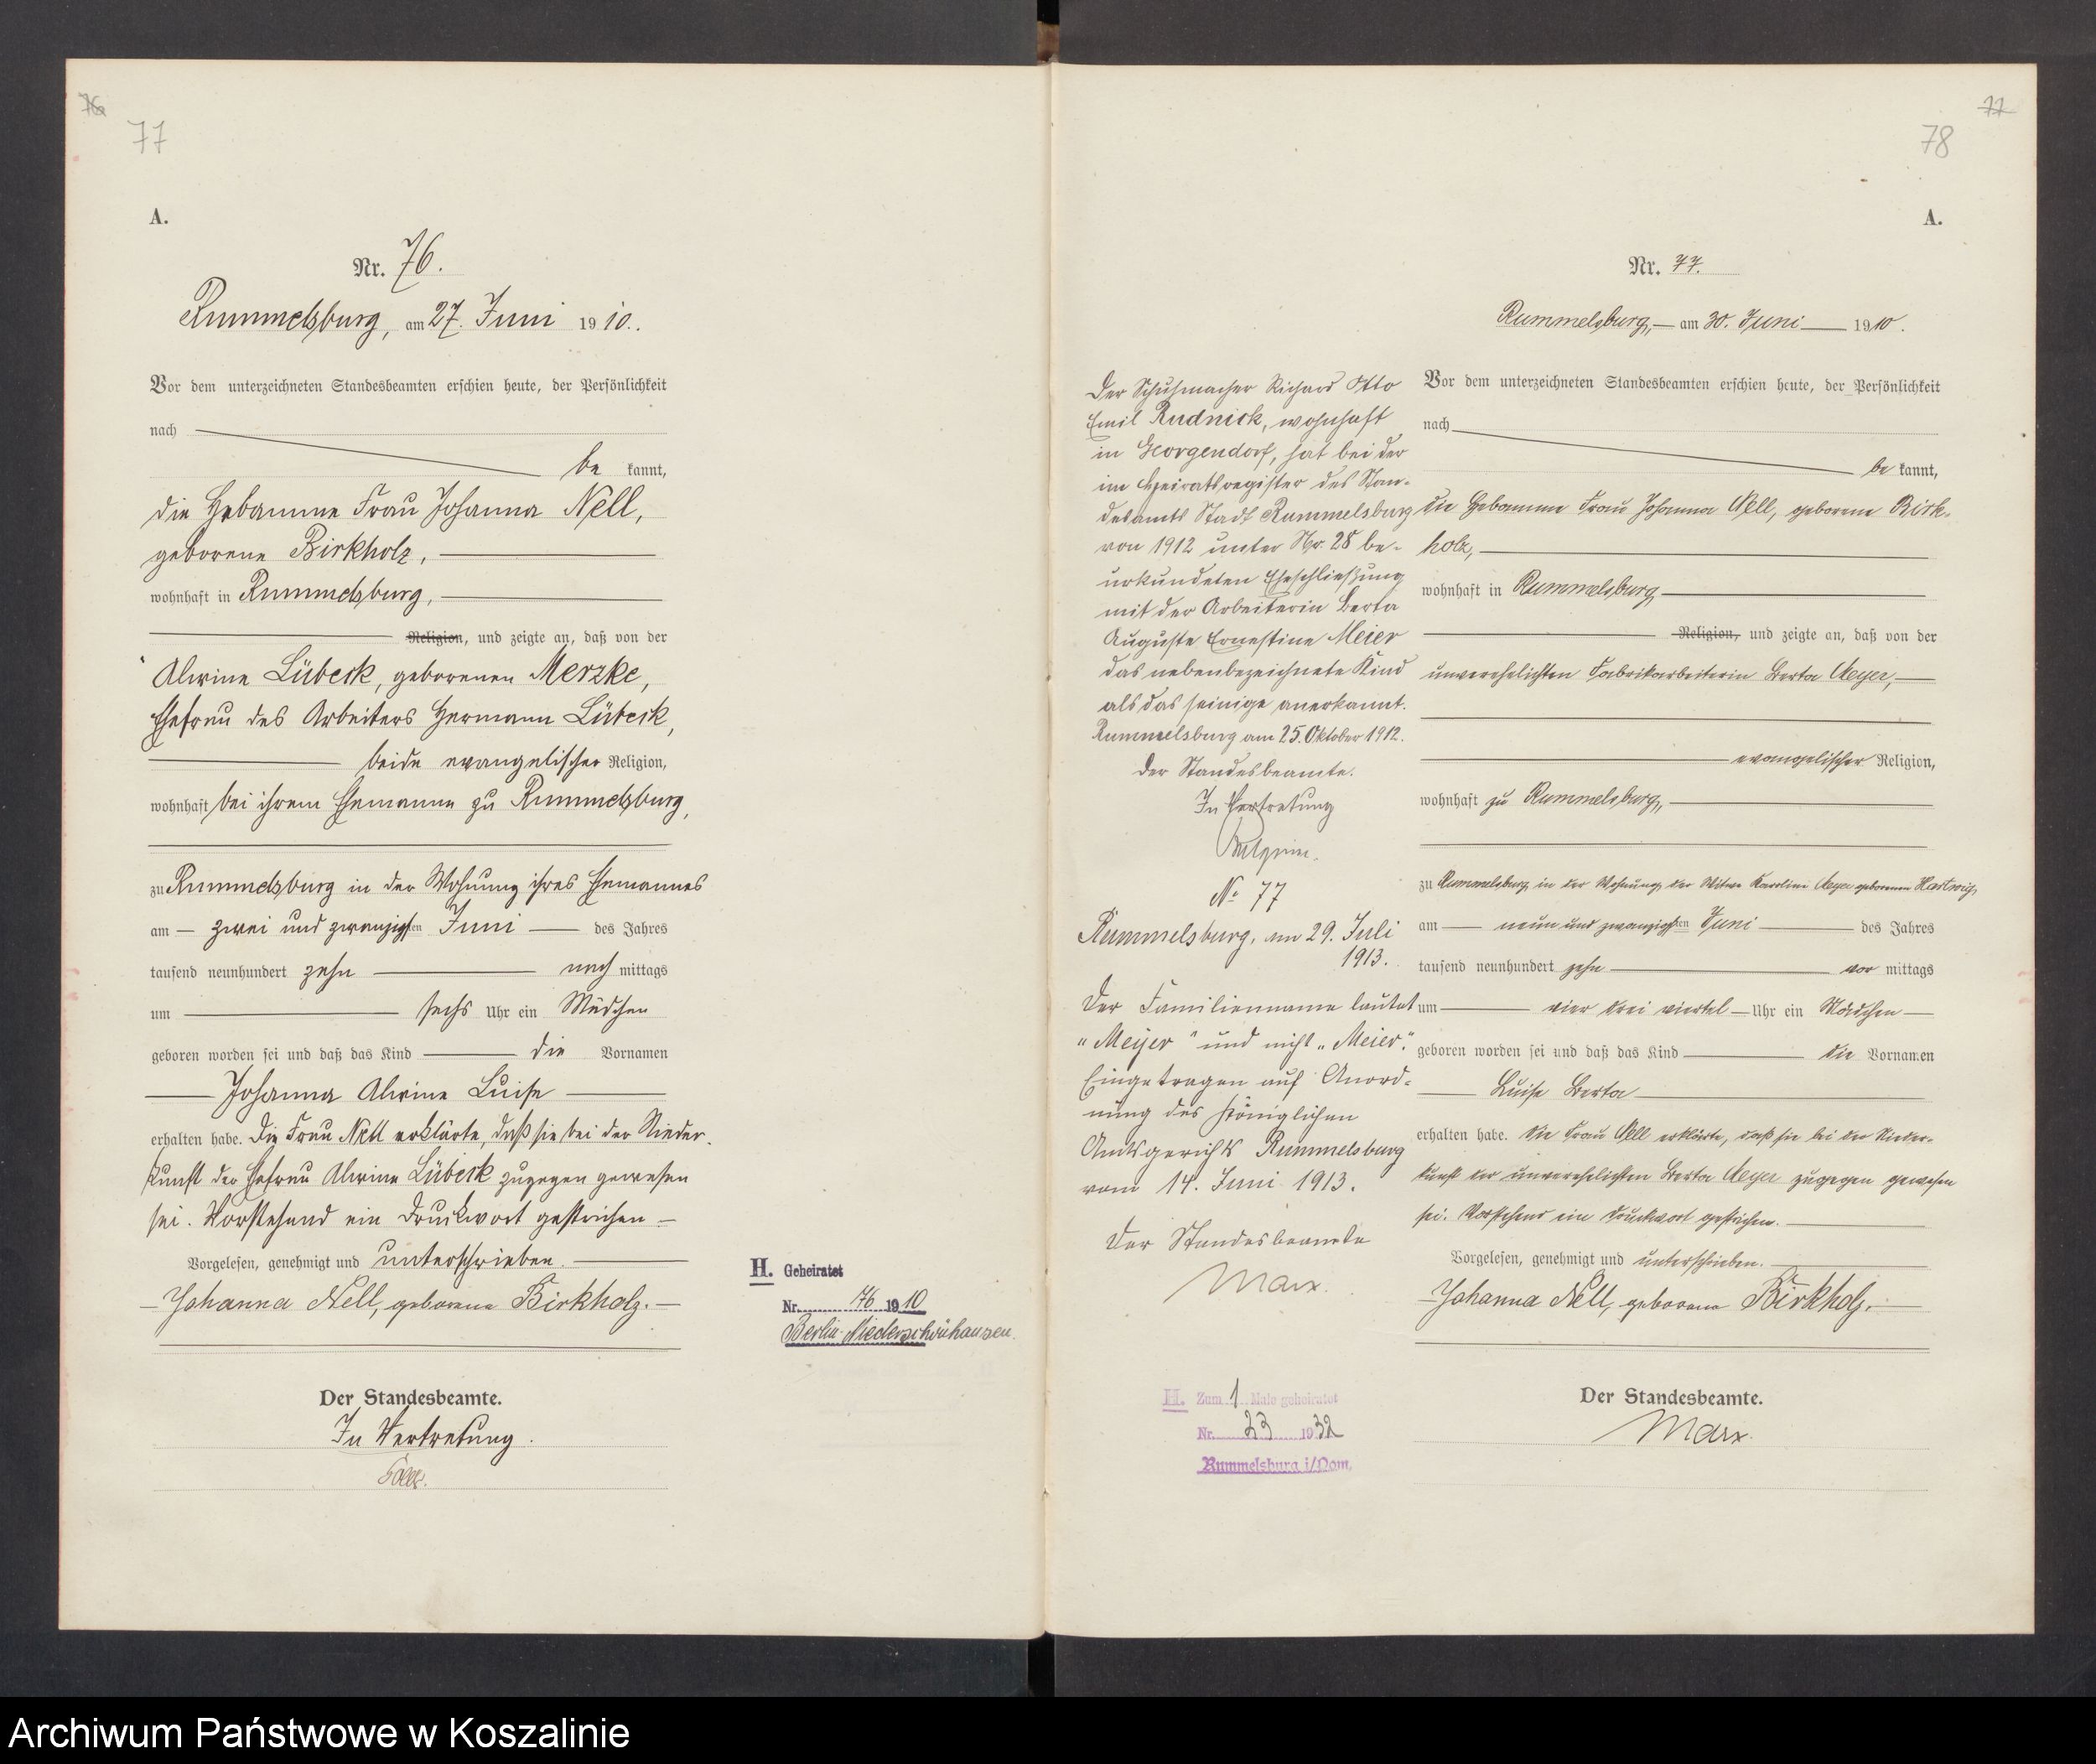 76
77
A.
Nr. 76.
Rummelsburg, am 27. Juni 1910.
Vor dem unterzeichneten Standesbeamten erschien heute, der Persönlichkeit
nach
be kannt,
die Hebamme Frau Johanna Nell,
geborene Birkholz,
wohnhaft in Rummelsburg,
Religion, und zeigte an, daß von der
Alwine Lübeck, geborenen Merzke,
Ehefrau des Arbeiters Hermann Lübeck,
beide evangelischer Religion,
wohnhaft bei ihrem Ehemanne zu Rummelsburg,
zu Rummelsburg in der Wohnung ihres Ehemannes
am zwei und zwanzigsten Juni des Jahres
tausend neunhundert zehn nach mittags
um sechs Uhr ein Mädchen
geboren worden sei und daß das Kind die Vornamen
Johanna Alwine Luise
erhalten habe. Die Frau Nell erklärte, daß sie bei der Nieder-
kunft der Ehefrau Alwine Lübeck zugegen gewesen
sei. Vorstehend ein Druckwort gestrichen.
Vorgelesen, genehmigt und unterschrieben.
Johanna Nell, geborene Birkholz.
Der Standesbeamte.
In Vertretung.
H. Geheiratet
Nr. 76 1910
Berlin-Niederschönhausen.
77
78
A.
Nr. 77.
Rummelsburg, am 30. Juni 1910.
Vor dem unterzeichneten Standesbeamten erschien heute, der Persönlichkeit
nach
be kannt,
die Hebamme Frau Johanna Nell, geborene Birk-
holz,
wohnhaft in Rummelsburg,
Religion, und zeigte an, daß von der
unverehelichten Fabrikarbeiterin Berta Meyer,
evangelischer Religion,
wohnhaft zu Rummelsburg,
zu Rummelsburg in der Wohnung der Witwe Karoline Meyer geborenen Hartwig,
am neun und zwanzigsten Juni des Jahres
tausend neunhundert zehn vor mittags
um vier drei viertel Uhr ein Mädchen
geboren worden sei und daß das Kind die Vornamen
Luise Berta
erhalten habe. Die Frau Nell erklärte, daß sie bei der Nieder-
kunft der unverehelichten Berta Meyer zugegen gewesen
sei. Vorstehend ein Druckwort gestrichen.
Vorgelesen, genehmigt und unterschrieben.
Johanna Nell, geborene Birkholz.
Der Standesbeamte.
Marx.
Der Schuhmacher Richard Otto
Emil Rudnick, wohnhaft
in Georgendorf, hat bei der
im Heiratsregister des Stan-
desamts Stadt Rummelsburg
von 1912 unter Nr. 28 be-
urkundeten Eheschließung
mit der Arbeiterin Berta
Auguste Ernestine Meier
das nebenbezeichnete Kind
als das seinige anerkannt.
Rummelsburg am 25. Oktober 1912.
Der Standesbeamte.
In Vertretung
No 77
Rummelsburg, am 29. Juli
1913.
Der Familienname lautet
"Meyer" und nicht "Meier".
Eingetragen auf Anord-
nung des Königlichen
Amtsgerichts Rummelsburg
vom 14. Juni 1913.
Der Standesbeamte
Marx.
H. Zum 1 Male geheiratet
Nr. 23 1932
Rummelsburg i/Pom.
Archiwum Państwowe w Koszalinie